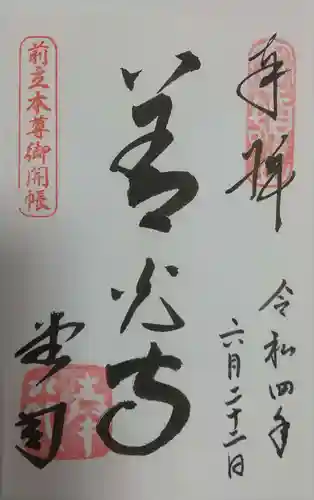 奉拝
令和四年
六月二十二日
善光寺
前立本尊御開帳
堂司